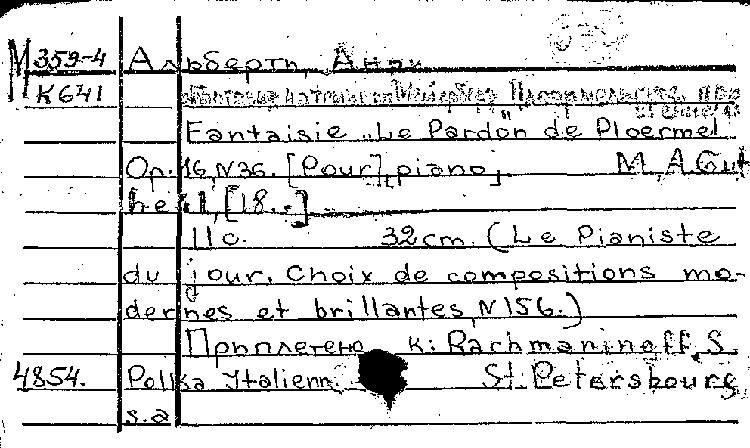 М 359-4 Альберти, Анри
К641
Fantaisie „Le Pardon" de Ploermel
Op. 16, N36. [Pour] piano. М., A. Gut
heil, [18..]
11 с. 32 cm. (Le Pianiste
du jour. Choix de compositions mo-
dernes et brillantes, N156.)
Приплетено к: Rachmaninoff, S.
4854. Polka Italienn St. Petersbourg
s.a